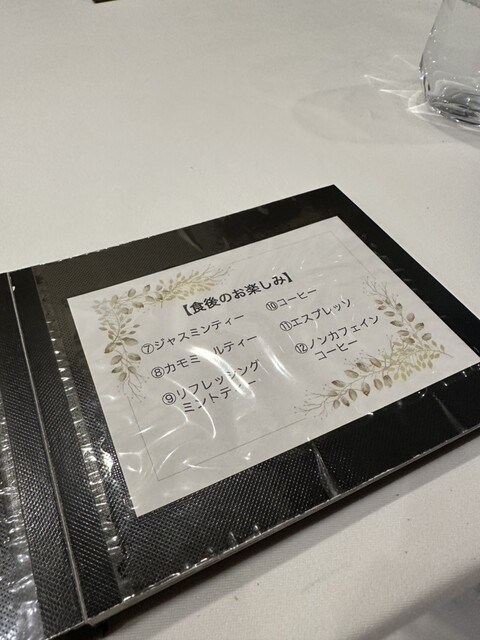 【食後のお楽しみ】
⑦ジャスミンティー
⑧カモミールティー
⑨リフレッシング
ミントティー
⑩コーヒー
⑪エスプレッソ
⑫ノンカフェイン
コーヒー